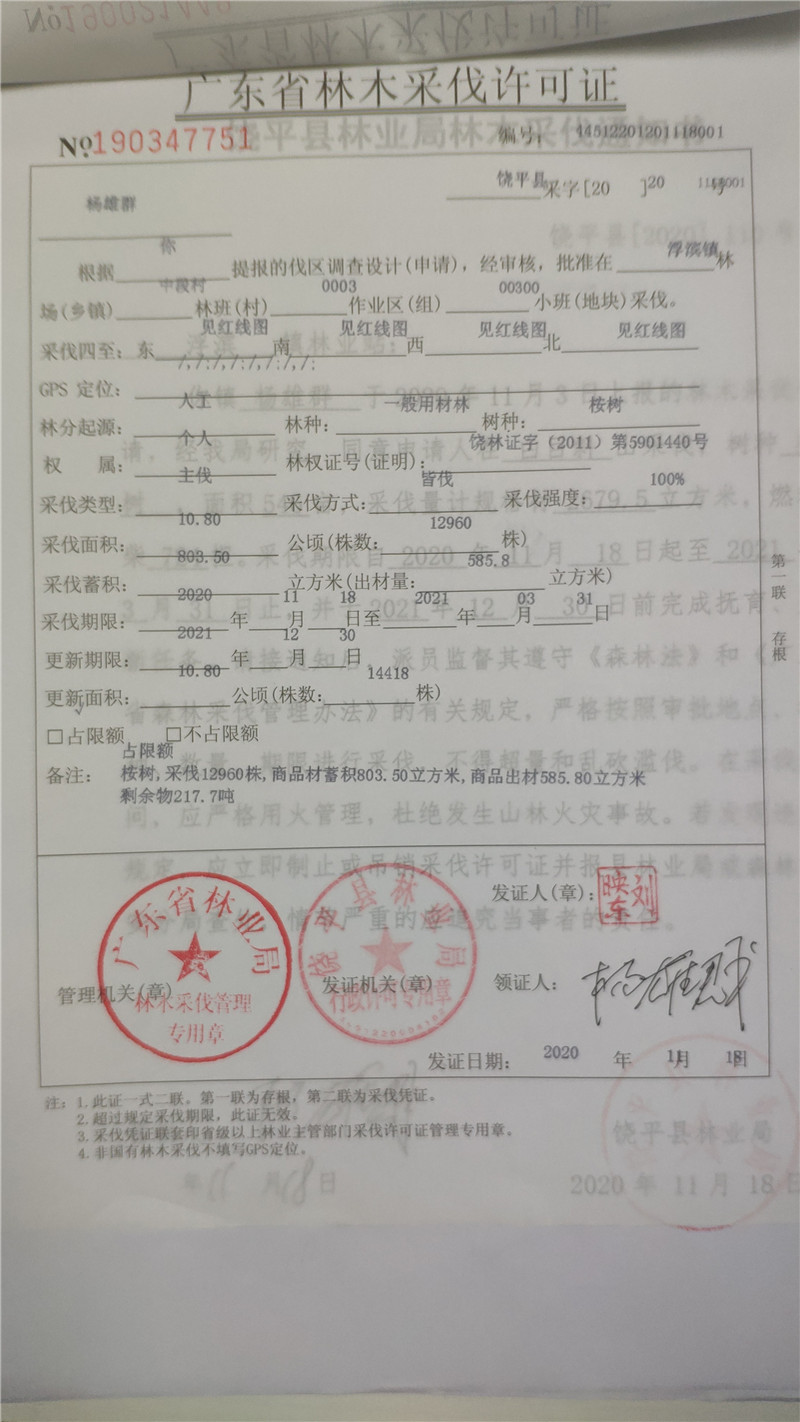 广东省林木采伐许可证
№190347751 编号: 44512201201118001
饶平县 采字[20 ]20 1118001号
杨雄群
根据 你 提报的伐区调查设计(申请),经审核,批准在 浮滨镇 林
场(乡镇) 中段村 林班(村) 0003 作业区(组) 00300 小班(地块)采伐。
采伐四至: 东 见红线图 南 见红线图 西 见红线图 北 见红线图
GPS 定位: /,/;/,/;/,/;/,/;
林分起源: 人工 林种: 一般用材林 树种: 桉树
权 属: 个人 林权证号(证明): 饶林证字 (2011) 第5901440号
采伐类型: 主伐 采伐方式: 皆伐 采伐强度: 100%
采伐面积: 10.80 公顷(株数: 12960 株)
采伐蓄积: 803.50 立方米(出材量: 585.8 立方米)
采伐期限: 2020 年 11 月 18 日至 2021 年 03 月 31 日
更新期限: 2021 年 12 月 30 日
更新面积: 10.80 公顷(株数: 14418 株)
√
□占限额 □不占限额
占限额
备注: 桉树,采伐12960株,商品材蓄积803.50立方米,商品出材585.80立方米
剩余物217.7吨
第一联 存根
发证人(章): 刘映东
广东省林业局
林木采伐管理
专用章
饶平县林业局
行政许可专用章
管理机关(章) 发证机关(章) 领证人:
发证日期: 2020 年 11 月 18 日
注: 1.此证一式二联。第一联为存根,第二联为采伐凭证。
2.超过规定采伐期限,此证无效。
3.采伐凭证联套印省级以上林业主管部门采伐许可证管理专用章。
4.非国有林木采伐不填写GPS定位。
饶平县林业局
2020 年 11 月 18 日